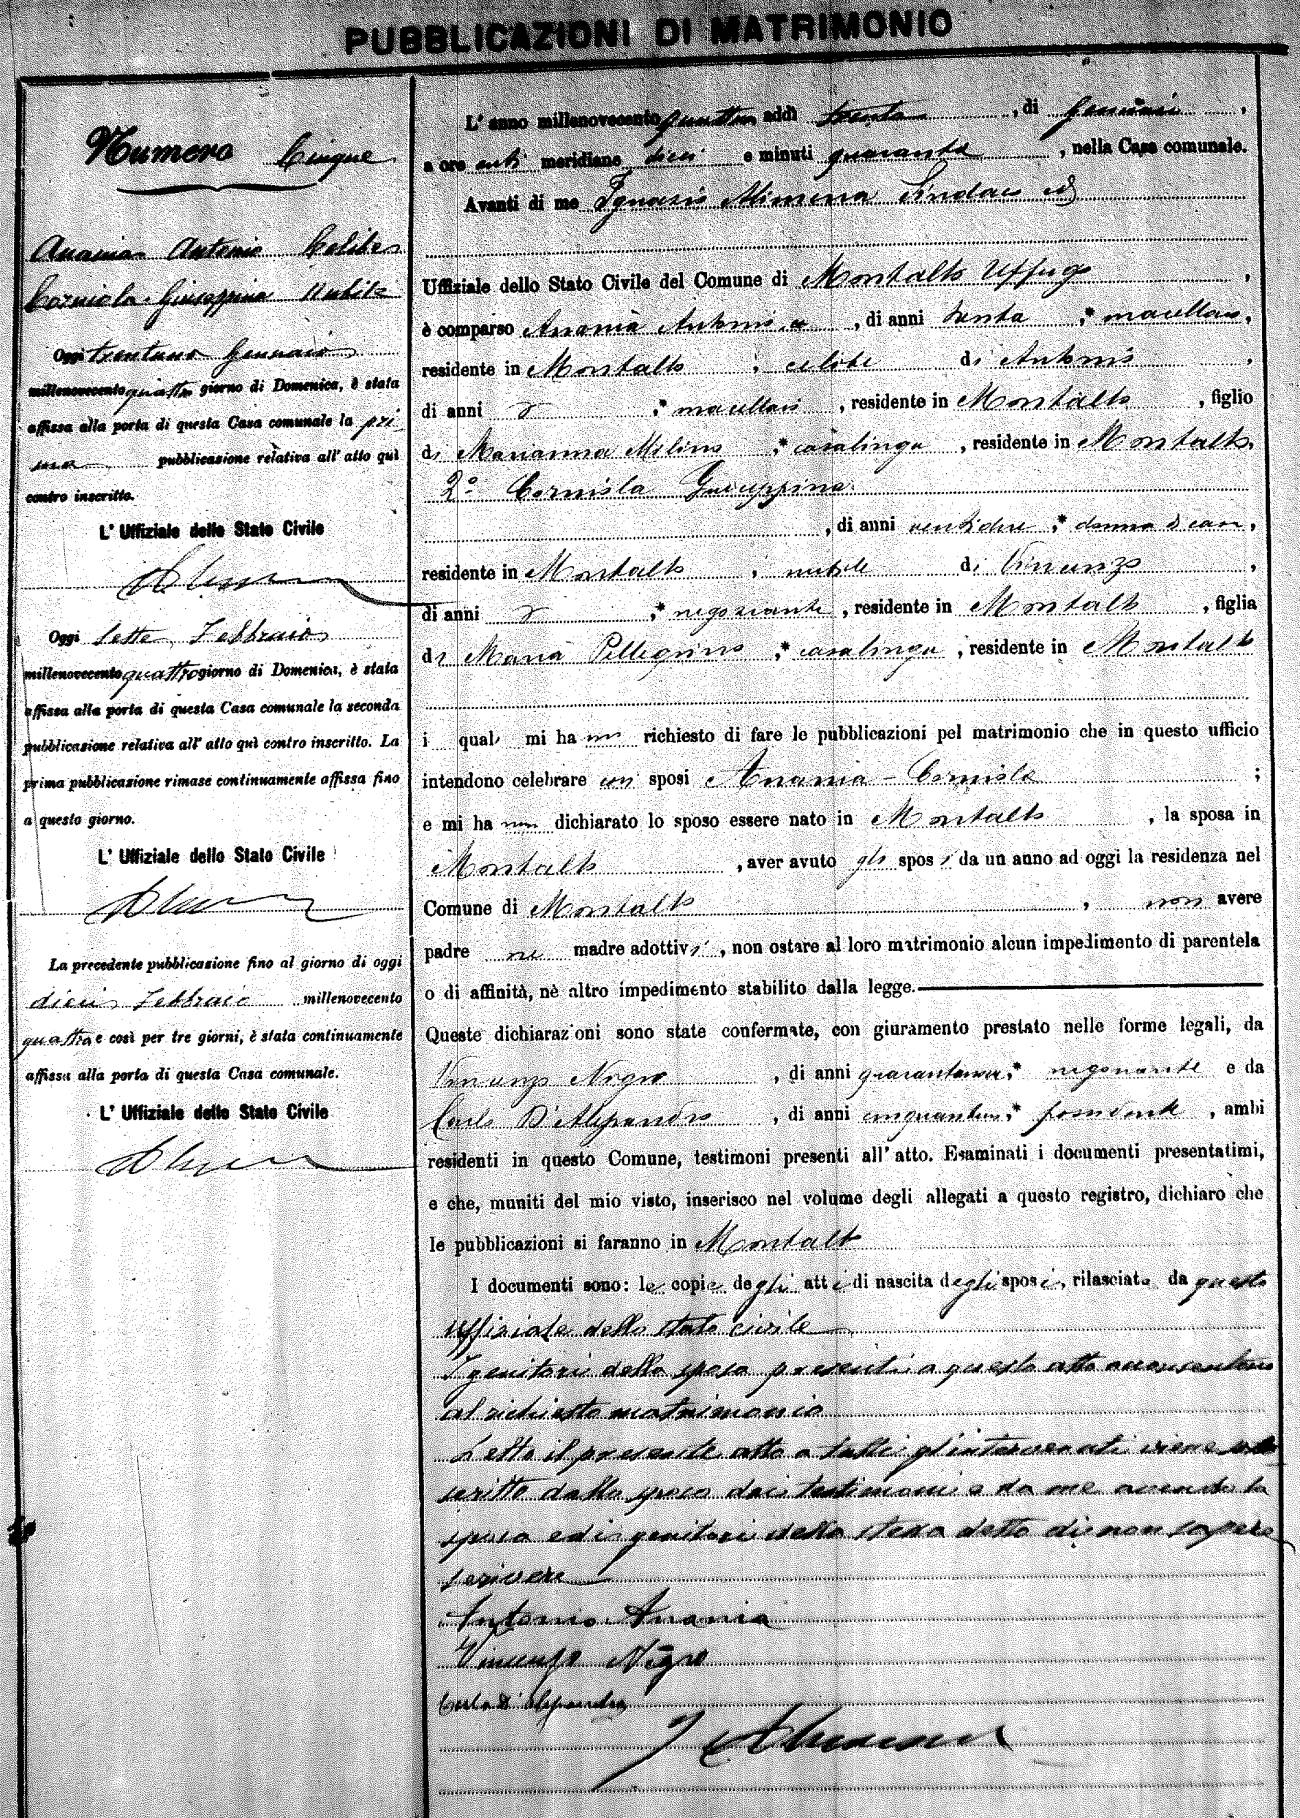 PUBBLICAZIONI DI MATRIMONIO
Numero Cinque
Anania Antonio Celibe
Corniola Giuseppina Nubile
Oggi trentuno Gennaio
millenovecento quattro giorno di Domenica, è stata
affissa alla porta di questa Casa comunale la pri-
ma pubblicazione relativa all' atto quì
contro inscritto.
L' Uffiziale dello Stato Civile
Oggi sette Febbraio
millenovecento quattro giorno di Domenica, è stata
affissa alla porta di questa Casa comunale la seconda
pubblicazione relativa all' atto quì contro inscritto. La
prima pubblicazione rimase continuamente affissa fino
a questo giorno.
L' Uffiziale dello Stato Civile
La precedente pubblicazione fino al giorno di oggi
dieci Febbraio millenovecento
quattro e così per tre giorni, è stata continuamente
affissa alla porta di questa Casa comunale.
L' Uffiziale dello Stato Civile
L' anno millenovecento quattro addì trenta, di Gennaio,
a ore anti meridiane dieci e minuti quaranta, nella Casa comunale.
Avanti di me Ignazio Alimena Sindaco ed
Uffiziale dello Stato Civile del Comune di Montalto Uffugo,
è comparso Anania Antonio, di anni trenta,* macellaio,
residente in Montalto, celibe di Antonio,
di anni,* macellaio, residente in Montalto, figlio
di Marianna Molino,* casalinga, residente in Montalto,
2.° Corniola Giuseppina
, di anni ventidue,* donna di casa,
residente in Montalto, nubile di Vincenzo,
di anni,* negoziante, residente in Montalto, figlia
di Maria Pellegrino,* casalinga, residente in Montalto
i quali mi hanno richiesto di fare le pubblicazioni pel matrimonio che in questo ufficio
intendono celebrare essi sposi Anania - Corniola;
e mi hanno dichiarato lo sposo essere nato in Montalto, la sposa in
Montalto, aver avuto gli sposi da un anno ad oggi la residenza nel
Comune di Montalto, non avere
padre nè madre adottivi, non ostare al loro matrimonio alcun impedimento di parentela
o di affinità, nè altro impedimento stabilito dalla legge.
Queste dichiarazioni sono state confermate, con giuramento prestato nelle forme legali, da
Vincenzo Nigro, di anni,* negoziante e da
Carlo D'Alessandro, di anni,* possidente, ambi
residenti in questo Comune, testimoni presenti all' atto. Esaminati i documenti presentatimi,
e che, muniti del mio visto, inserisco nel volume degli allegati a questo registro, dichiaro che
le pubblicazioni si faranno in Montalto
I documenti sono: le copie degli atti di nascita degli sposi, rilasciate da questo
Uffiziale dello stato civile
I genitori della sposa presenti a questo atto acconsentono
al richiesto matrimonio
Letto il presente atto a tutti gl'intervenuti viene sotto
scritto dallo sposo dai testimoni e da me avendo la
sposa ed i genitori della stessa detto di non sapere
scrivere
Antonio Anania
Vincenzo Nigro
Carlo D'Alessandro
I Alimena